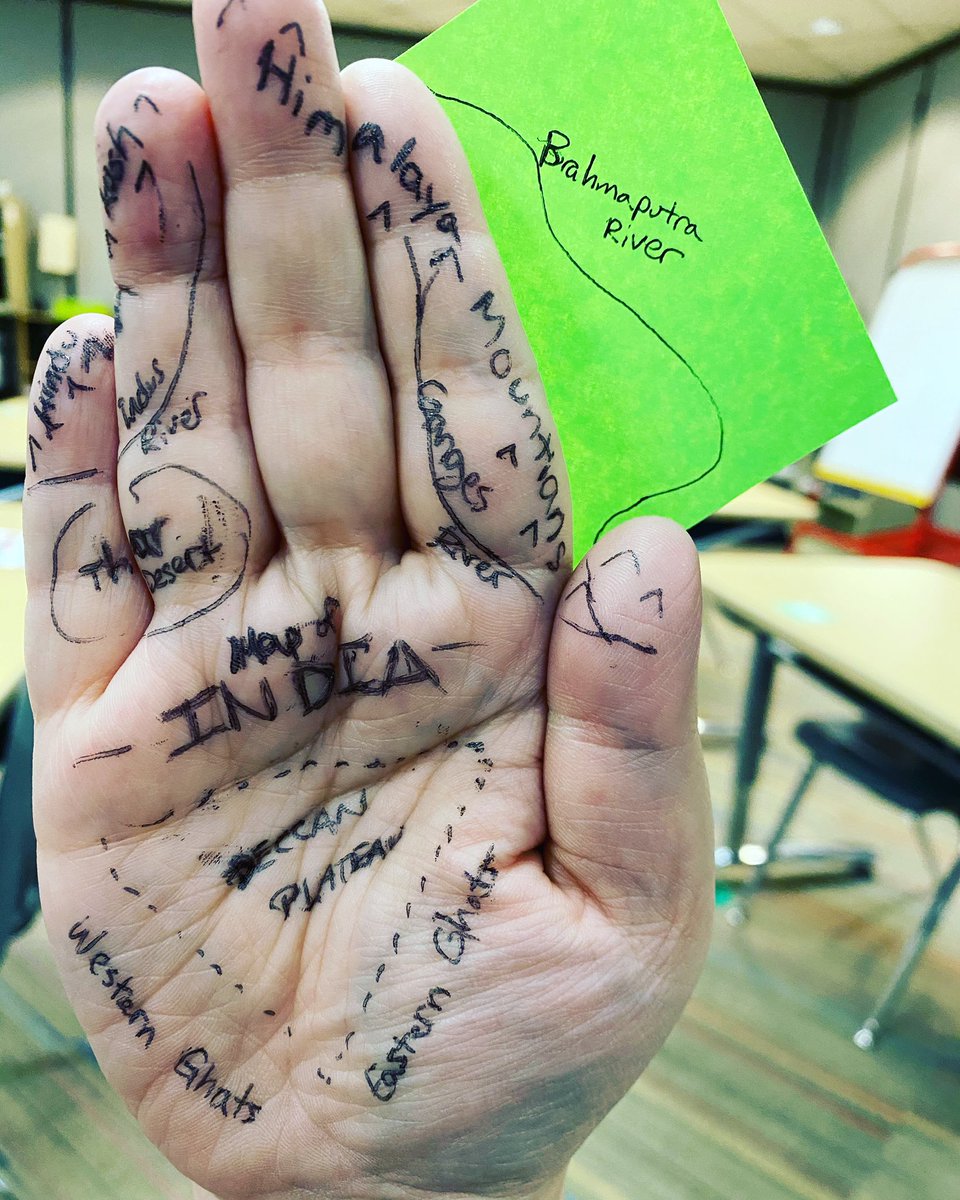 Hindu
Kush
Himalayan Mountains
Brahmaputra
River
Indus
River
Ganges
River
Thar
Desert
Map of
INDIA
DECCAN
PLATEAU
Western Ghats
Eastern Ghats